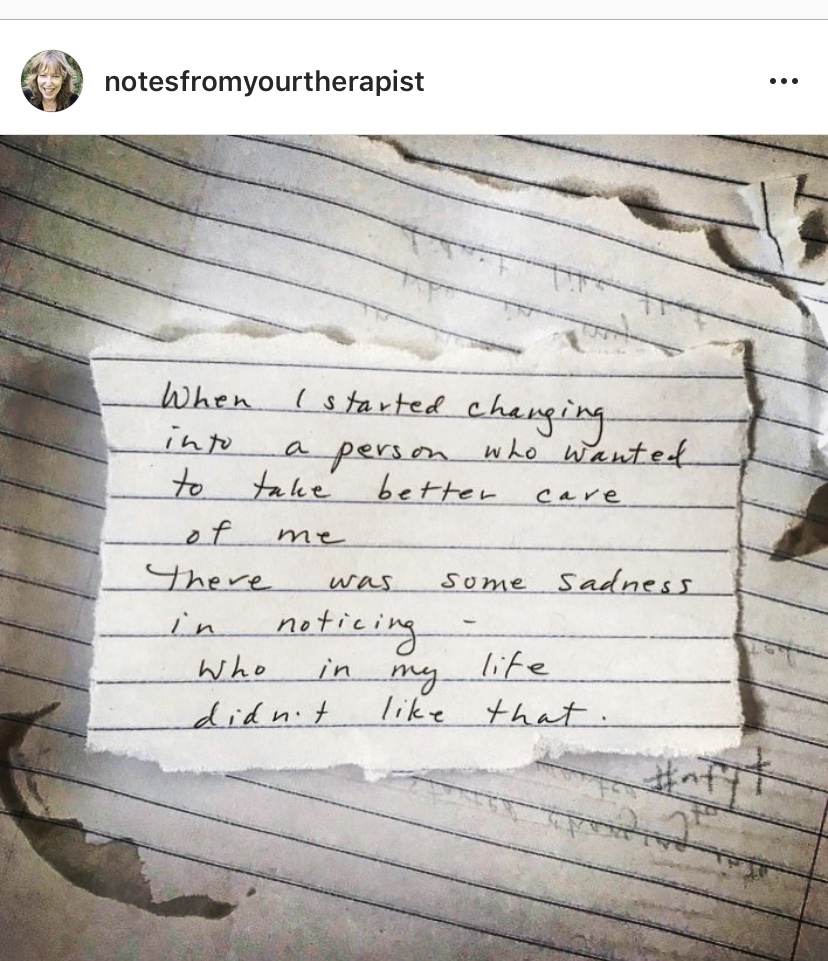 notesfromyourtherapist
When I started changing
into a person who wanted
to take better care
of me
There was some sadness
in noticing -
who in my life
didn't like that.